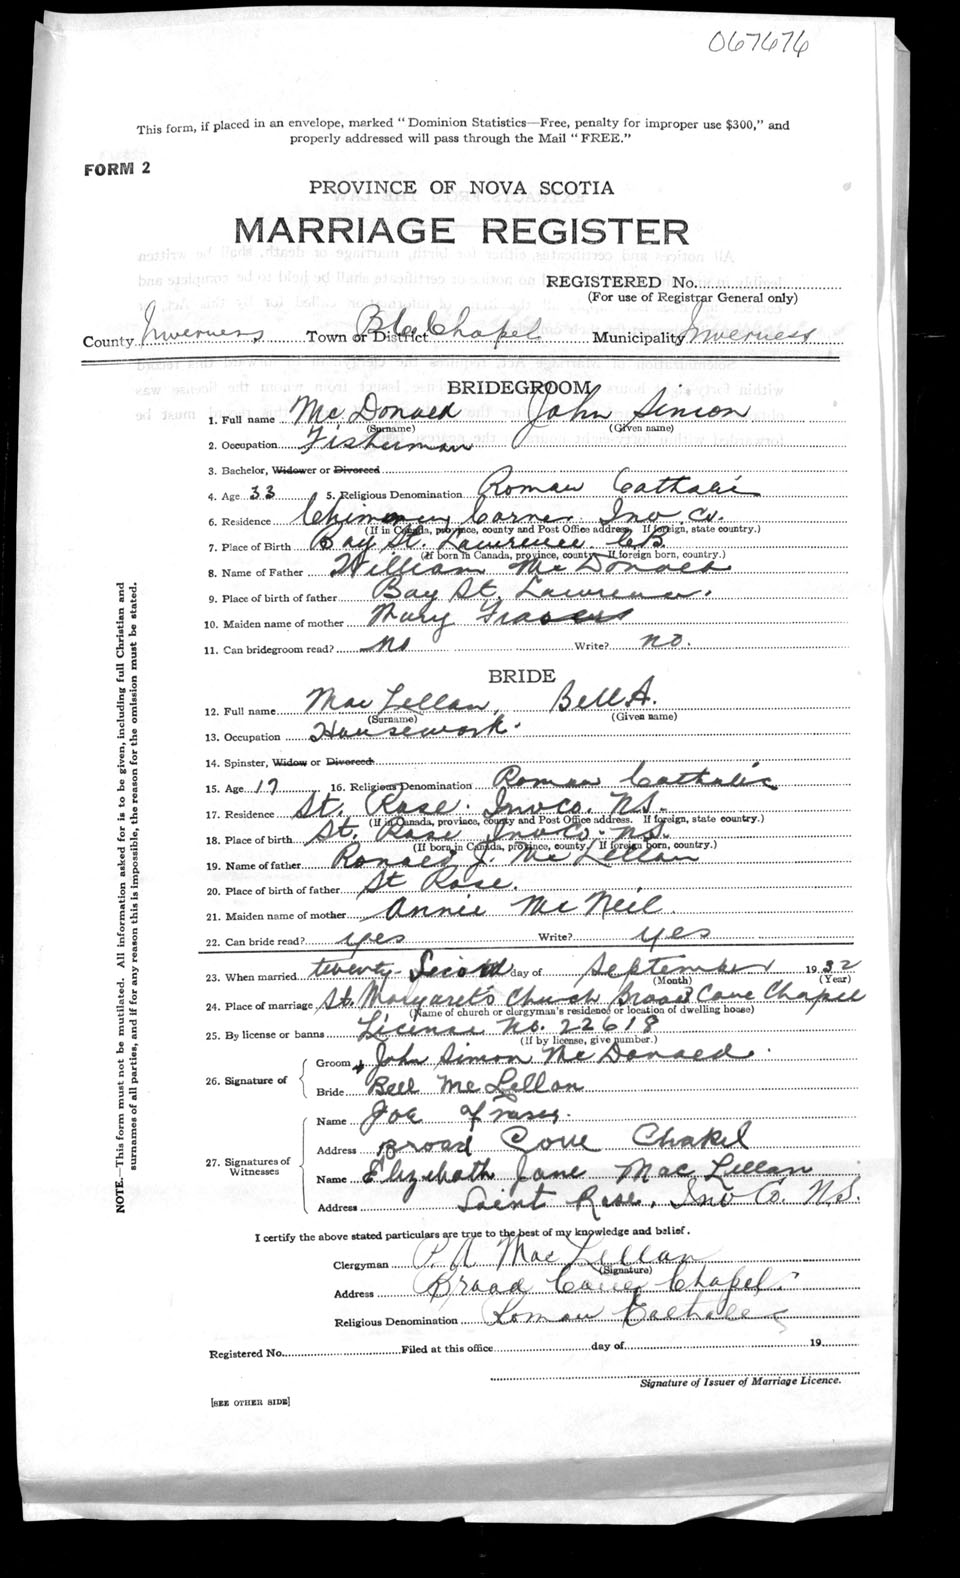 067676
This form, if placed in an envelope, marked "Dominion Statistics—Free, penalty for improper use $300," and
properly addressed will pass through the Mail "FREE."
FORM 2
PROVINCE OF NOVA SCOTIA
MARRIAGE REGISTER
REGISTERED No.
(For use of Registrar General only)
County Inverness Town or District B.C. Chapel Municipality Inverness
BRIDEGROOM
1. Full name McDonald John Simon
(Surname) (Given name)
2. Occupation Fisherman
3. Bachelor, Widower or Divorced
4. Age 33 5. Religious Denomination Roman Catholic
6. Residence Chimney Corner Inv Co.
(If in Canada, province, county and Post Office address. If foreign, state country.)
7. Place of Birth Bay St. Lawrence C B
(If born in Canada, province, county. If foreign born, country.)
8. Name of Father William McDonald
9. Place of birth of father Bay St. Lawrence.
10. Maiden name of mother Mary Fraser
11. Can bridegroom read? no Write? no.
BRIDE
12. Full name MacLellan, Bell A.
(Surname) (Given name)
13. Occupation Housework.
14. Spinster, Widow or Divorced
15. Age 17 16. Religious Denomination Roman Catholic
17. Residence St. Rose. Inv Co. N.S.
(If in Canada, province, county and Post Office address. If foreign, state country.)
18. Place of birth St. Rose Inv Co. N.S.
(If born in Canada, province, county. If foreign born, country.)
19. Name of father Ronald J. McLellan
20. Place of birth of father St Rose.
21. Maiden name of mother Annie McNeil
22. Can bride read? yes Write? yes
23. When married twenty-second day of September 1932
(Month) (Year)
24. Place of marriage St. Margaret's Church Broad Cove Chapel
(Name of church or clergyman's residence or location of dwelling house)
25. By license or banns License No. 22618
(If by license, give number.)
26. Signature of
Groom John Simon McDonald.
Bride Bell McLellan
27. Signatures of Witnesses
Name Joe
Address Broad Cove Chapel
Name Elizebath Jane MacLellan
Address Saint Rose, Inv Co. N.S.
I certify the above stated particulars are true to the best of my knowledge and belief.
Clergyman P. A MacLellan
(Signature)
Address Broad Cove Chapel
Religious Denomination Roman Catholic
Registered No. Filed at this office day of 19
Signature of Issuer of Marriage Licence.
[SEE OTHER SIDE]
NOTE.—This form must not be mutilated. All information asked for is to be given, including full Christian and
surnames of all parties, and if for any reason this is impossible, the reason for the omission must be stated.